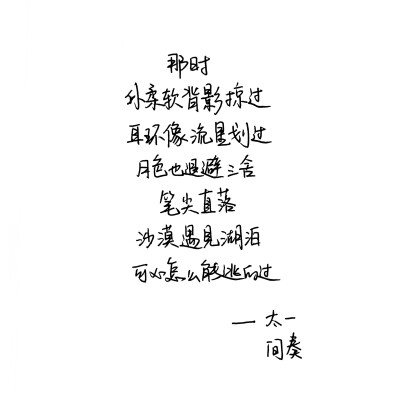 那时
你柔软背影掠过
耳环像流星划过
月色也退避三舍
笔尖直落
沙漠遇见湖泊
可心怎么能逃的过
— 太一
间奏